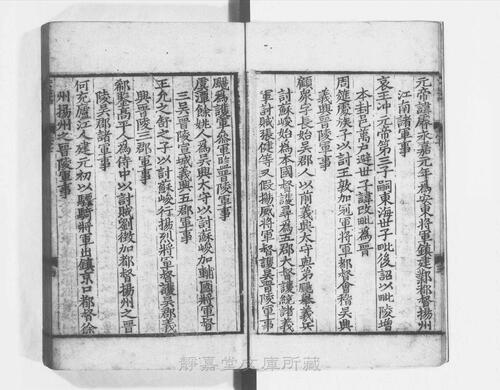 元帝諱睿永嘉元年為安東將軍鎮建鄴都督揚州
江南諸軍事
哀王沖元帝第三子嗣東海世子毗後詔以毗陵增
本封邑萬戶避世子諱改毗為晉
周札靡族子以討王敦加冠軍將軍都督會稽吳興
義興晉陵
顧衆字長始吳郡人以前義興太守與第颺舉義兵
討蘇峻始為本國督護尋為五郡大督護統諸義
軍討賊張健等又假揚威將軍督護吳晉陵軍事
颺為護軍參軍監晉陵軍事
虞潭餘姚人為吳興太守以討蘇峻加輔國將軍督
三吳晉陵宣城義興五郡軍事
王允之舒之子以討蘇峻行揚烈將軍督護吳郡義
興晉陵三郡軍事
郗鑒高平人為侍中以討賊劉徵加都督揚州之晉
陵吳郡諸軍事
何充廬江人建元初以驃騎將軍出鎮京口都督徐
州揚州之晉陵軍事
靜嘉堂文庫所藏